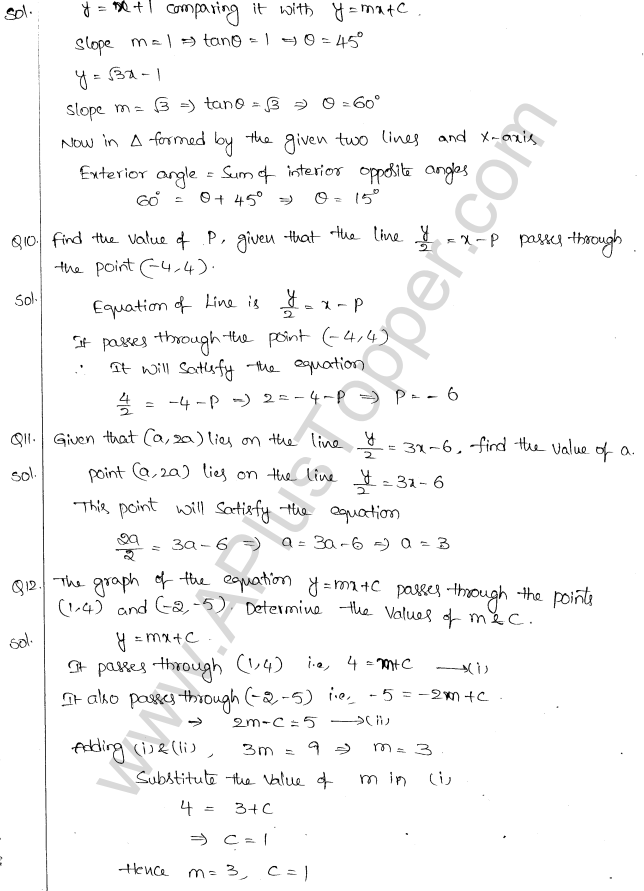 Sol. y = x+1 comparing it with y = mx+c.
Slope m = 1 ⇒ tanθ = 1 ⇒ θ = 45°
y = √3x − 1
Slope m = √3 ⇒ tanθ = √3 ⇒ θ = 60°
Now in Δ formed by the given two lines and x-axis
Exterior angle = Sum of interior opposite angles
60° = θ + 45° ⇒ θ = 15°
Q10. Find the value of P, given that the line y/2 = x − P passes through
the point (−4, 4).
Sol. Equation of Line is y/2 = x − P
It passes through the point (−4, 4)
∴ It will satisfy the equation
4/2 = −4 − P ⇒ 2 = −4 − P ⇒ P = − 6
Q11. Given that (a, 2a) lies on the line y/2 = 3x − 6, find the value of a.
Sol. point (a, 2a) lies on the line y/2 = 3x − 6
This point will satisfy the equation
2a/2 = 3a − 6 ⇒ a = 3a − 6 ⇒ a = 3
Q12. The graph of the equation y = mx + c passes through the points
(1, 4) and (−2, −5). Determine the values of m & c.
Sol. y = mx + c.
It passes through (1, 4) i.e, 4 = m + c ⟶ (i)
It also passes through (−2, −5) i.e, −5 = −2m + c
⇒ 2m − c = 5 ⟶ (ii)
Adding (i) & (ii), 3m = 9 ⇒ m = 3
Substitute the value of m in (i)
4 = 3 + c
⇒ c = 1
Hence m = 3, c = 1
www.APlusTopper.com